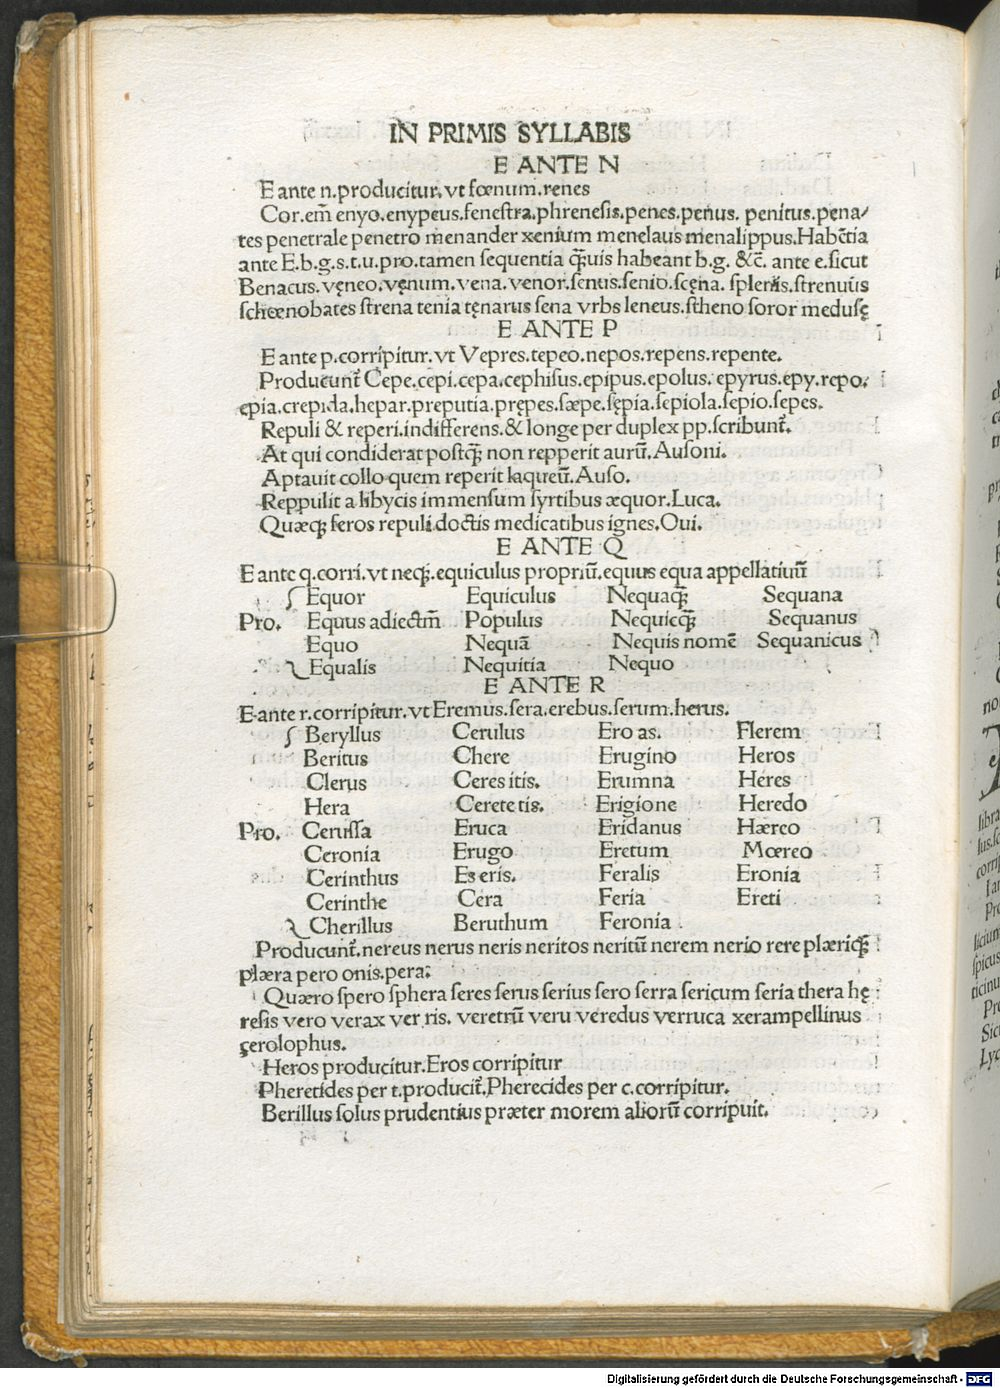 IN PRIMIS SYLLABIS
E ANTE N
E ante n.producitur.vt fœnum.renes
Cor.em̃ enyo.enypeus.fenestra.phrenesis.penes.penus. penitus.pena/
tes penetrale penetro menander xenium menelaus menalippus.Habẽtia
ante E.b.g.s.t.u.pro.tamen sequentia q̃uis habeant b.g. &c̃. ante e.sicut
Benacus.vęneo.vęnum.vena.venor.senus.senio.scęna. splenis.strenuus
schœnobates strena tenia tęnarus sena vrbs leneus.stheno soror medusę
E ANTE P
E ante p.corripitur.vt Vepres.tepeo.nepos.repens.repente.
Producunt̃ Cepe.cepi.cepa.cephisus.epipus.epolus.epyrus.epy.repo.
ępia.crepida.hepar.preputia.prępes.sæpe.sępia.sepiola.sepio.sepes.
Repuli & reperi.indifferens.& longe per duplex pp.scribunt̃.
At qui condiderat postq̃ non repperit aurũ.Ausoni.
Aptauit collo quem reperit laqueũ.Auso.
Reppulit a libycis immensum syrtibus æquor.Luca.
Quæcq̃ feros repuli.doctis medicatibus ignes.Oui.
E ANTE Q
E ante q.corri.vt neq̃.equiculus propriũ.equus equa appellatiuũ
Equor Equiculus Nequaq̃ Sequana
Pro. Equus adiectm̃ Populus Nequicq̃ Sequanus
Equo Nequã Nequis nomẽ Sequanicus
Equalis Nequitia Nequo
E ANTE R
E ante r.corripitur.vt Eremus.sera.erebus.serum.herus.
Beryllus Cerulus Ero as. Flerem
Beritus Chere Erugino Heros
Clerus Ceres itis. Erumna Heres
Hera Cerete tis. Erigione Heredo
Pro. Cerussa Eruca Eridanus Hæreo
Ceronia Erugo Eretum Mœreo
Cerinthus Es eris. Feralis Eronia
Cerinthe Cera Feria Ereti
Cherillus Beruthum Feronia
Producunt̃.nereus nerus neris neritos neritũ nerem nerio rere plæricq̃
plæra pero onis.pera:
Quæro spero sphera seres serus serius sero serra sericum seria thera hę
resis vero verax ver ris. veretrũ veru veredus verruca xerampellinus
çerolophus.
Heros producitur.Eros corripitur
Pheretides per t.producit̃.Pherecides per c.corripitur.
Berillus solus prudentius præter morem aliorũ corripuit.
Digitalisierung gefördert durch die Deutsche Forschungsgemeinschaft - DFG